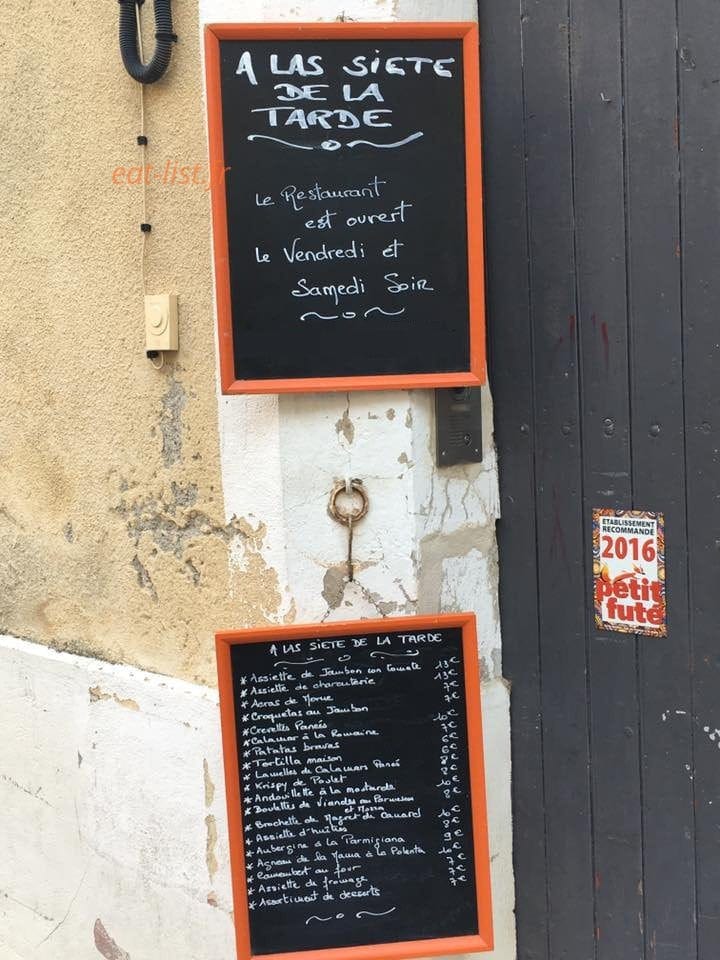 A LAS SIETE
DE LA
TARDE
Le Restaurant
est ouvert
Le Vendredi et
Samedi Soir
eat-list.fr
ETABLISSEMENT
RECOMMANDÉ
2016
petit
futé
A LAS SIETE DE LA TARDE
* Assiette de Jambon con tomate 13€
* Assiette de charcuterie 13€
* Acras de Morue 7€
* Croquetas au Jambon 7€
* Crevettes Panées 10€
* Calamar à la Romaine 7€
* Patatas bravas 6€
* Tortilla maison 6€
* Lamelles de Calamars Panés 8€
* Krispy de Poulet 8€
* Andouillette à la moutarde 10€
* Boulettes de Viandes au Parmesan 8€
et Mozza
* Brochette de Magret de Canard 10€
* Assiette d'huîtres 8€
* Aubergine a la Parmigiana 9€
* Agneau de la Mama à la Polenta 10€
* Camembert au four 7€
* Assiette de fromage 7€
* Assortiment de desserts 7€